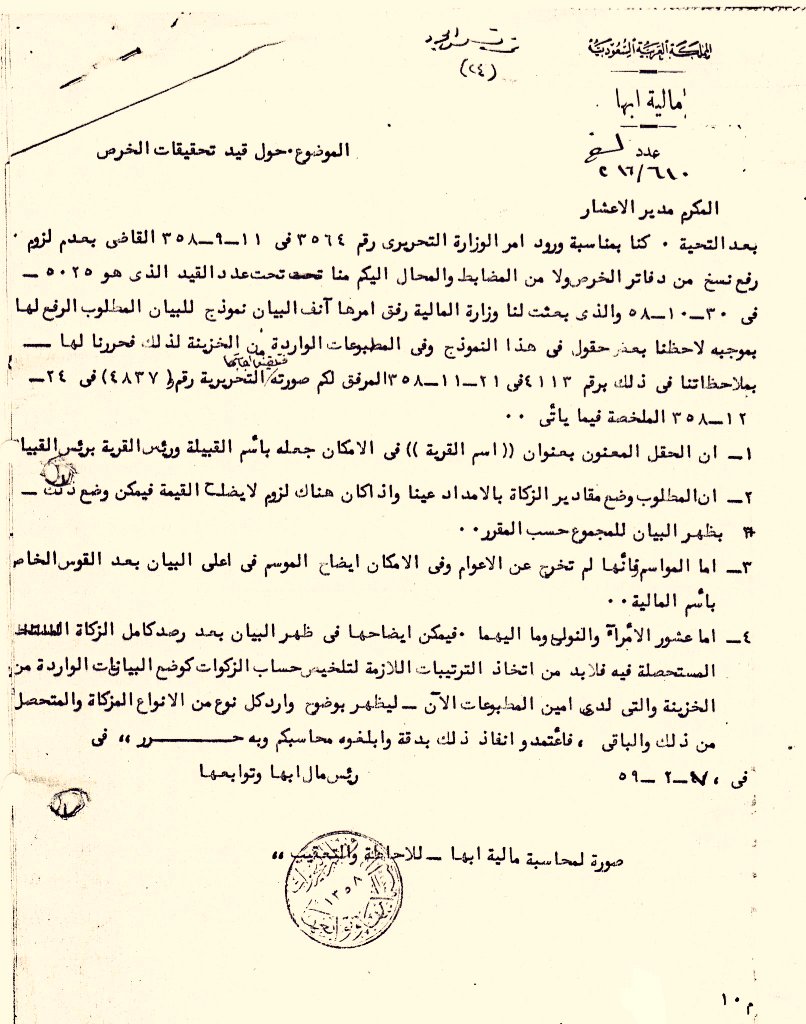 المملكة العربية السعودية
(٢٤)
مالية ابها
عدد
٢١٦/٦١٠
الموضوع٠حول قيد تحقيقات الخرص
المكرم مدير الاعشار
بعد التحية ٠ كنا بمناسبة ورود امر الوزارة التحريرى رقم ٣٥٦٤ فى ١١-٩-٣٥٨ القاضى بعدم لزوم ٠
رفع نسخ من دفاتر الخرص ولا من المضابط والمحال اليكم منا تحت تحت عدد القيد الذى هو ٥٠٢٥ ــ
فى ٣٠-١٠-٥٨ والذى بعثت لنا وزارة المالية رفق امرها آنف البيان نموذج للبيان المطلوب الرفع لها
بموجبه لاحظنا بعض حقول فى هذا النموذج وفى المطبوعات الواردة من الخزينة لذلك فحررنا لها ــ
بملاحظاتنا فى ذلك برقم ٤١١٣ فى ٢١-١١-٣٥٨ المرفق لكم صورته التحريرية رقم (٤٨٣٧) فى ٢٤-
١٢-٣٥٨ الملخصة فيما يأتى ٠٠
١ــ ان الحقل المعنون بعنوان ((اسم القرية)) فى الامكان جعله بأسم القبيلة ورئس القرية برئس القبيلة
٢ــ ان المطلوب وضع مقادير الزكاة بالامداد عينا واذاكان هناك لزوم لايضاح القيمة فيمكن وضع ذلك ــ
بظهر البيان للمجموع حسب المقرر٠٠
٣ــ اما المواسم فأنها لم تخرج عن الاعوام وفى الامكان ايضاح الموسم فى اعلى البيان بعد القوس الخاص
بأسم المالية٠٠
٤ــ اما عشور الأمرآة والنولى وما اليهما ٠فيمكن ايضاحها فى ظهر البيان بعد رصد كامل الزكاة
المستحصلة فيه فلابد من اتخاذ الترتيبات اللازمة لتلخيص حساب الزكوات كوضع البيانات الواردة من
الخزينة والتى لدى امين المطبوعات الآن ــ ليظهر بوضوح واردكل نوع من الانواع المزكاة والمتحصل
من ذلك والباقى ، فأعتمدو انفاذ ذلك بدقة وابلغوه محاسبكم وبه حـــــرر ،، فى
فى ٢-٥٩
رئس مال ابها وتوابعها
صورة لمحاسبة مالية ابها ــ للاحاطة والتعقيب ،،
١٣٥٨
م ١٠